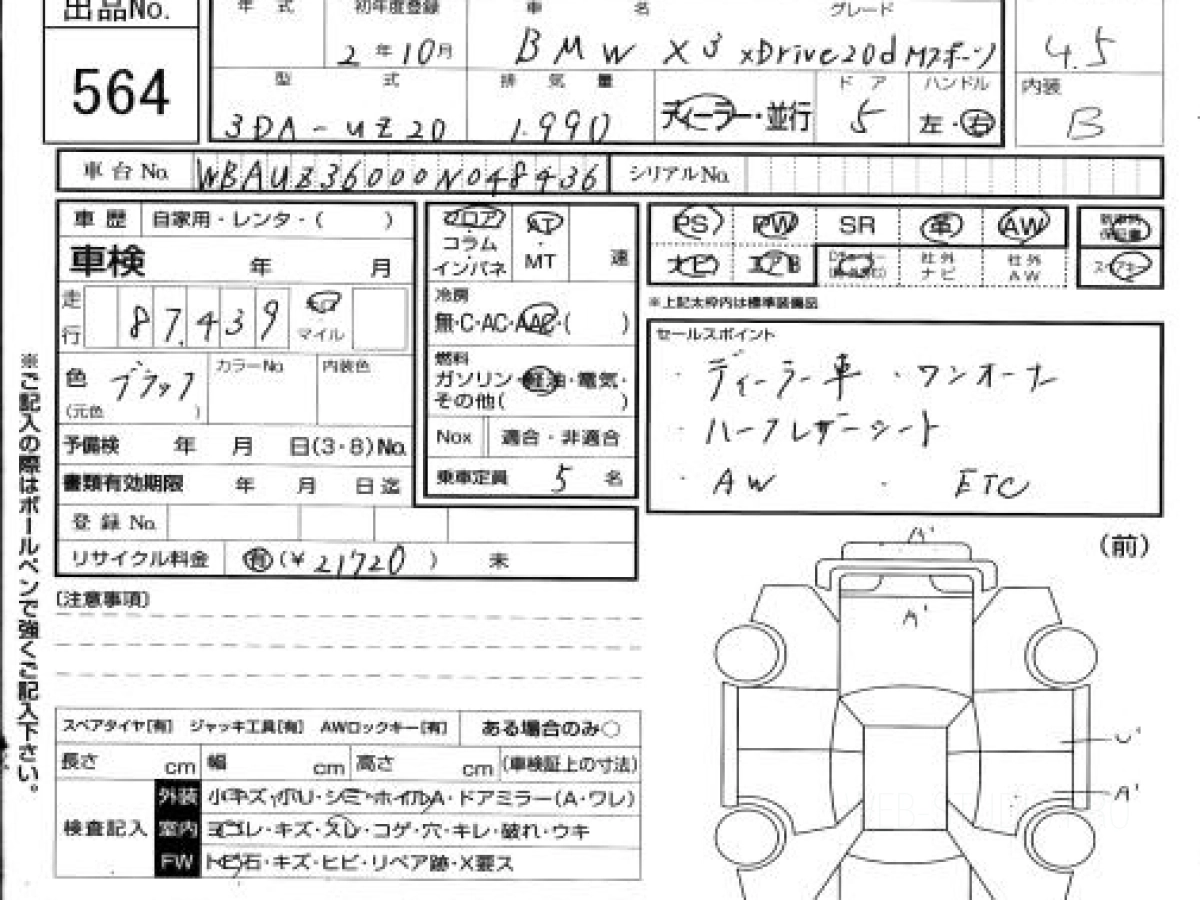 出品No. 年 式 初年度登録 車 名 グレード
564 2年10月 BMW X3 xDrive20d Mスポーツ 4.5
型 式 排 気 量 ド ア ハンドル 内装
3DA-UZ20 1.990 ディーラー・並行 5 左・右 B
車台No. WBAUZ36000N048436 シリアルNo.
車 歴 自家用・レンタ・( ) フロア AT PS PW SR 革 AW 新車時保証書
車検 年 月 コラム ・ 速
インパネ MT ナビ エアB 社外ナビ 社外AW スペアキー
走行 87,439 キロ 冷房 ※上記太枠内は標準装備品
マイル 無・C・AC・AAC・( )
色 ブラック カラーNo. 内装色 燃料 セールスポイント
(元色 ) ガソリン・軽油・電気・ ・ディーラー車 ・ワンオーナー
その他( ) ・ハーフレザーシート
予備検 年 月 日(3・8)No. Nox 適合・非適合 ・AW ・ETC
書類有効期限 年 月 日迄 乗車定員 5 名
登 録 No.
リサイクル料金 有(¥21720) 未
(前)
(注意事項)
A'
A'
U'
A'
※ご記入の際はボールペンで強くご記入下さい。
スペアタイヤ[有] ジャッキ工具[有] AWロックキー[有] ある場合のみ○
長さ cm 幅 cm 高さ cm (車検証上の寸法)
検査記入 外装 小キズ・小U・シミ・ホイルA・ドアミラー(A・ワレ)
室内 ヨゴレ・キズ・スレ・コゲ・穴・キレ・破れ・ウキ
FW トビ石・キズ・ヒビ・リペア跡・X要ス